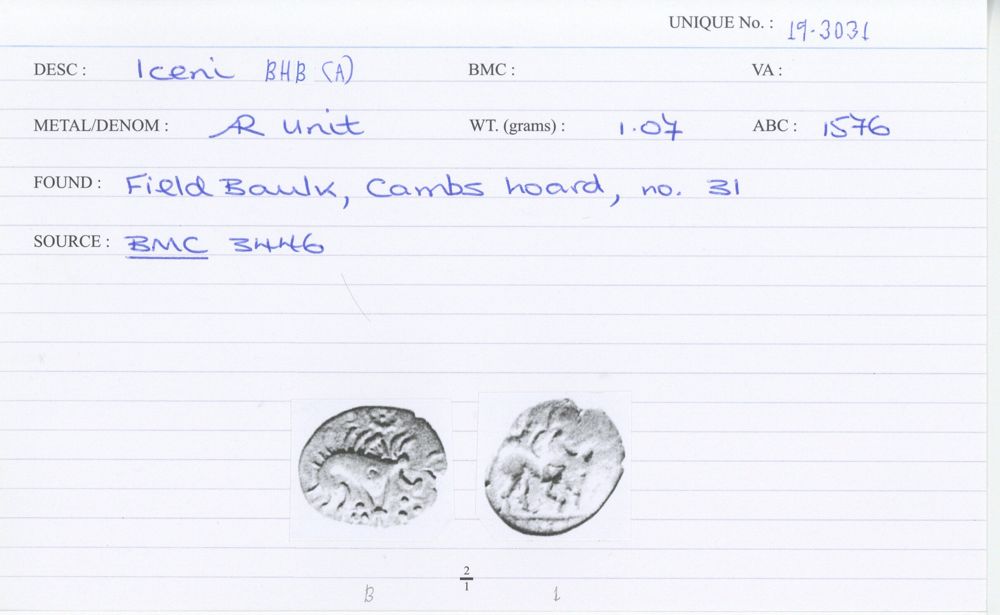 UNIQUE No. : 19-3031
DESC : Iceni BHB (A) BMC : VA :
METAL/DENOM : AR Unit WT. (grams) : 1.07 ABC : 1576
FOUND : Field Baulk, Cambs hoard, no. 31
SOURCE : BMC 3446
2
1
B 1